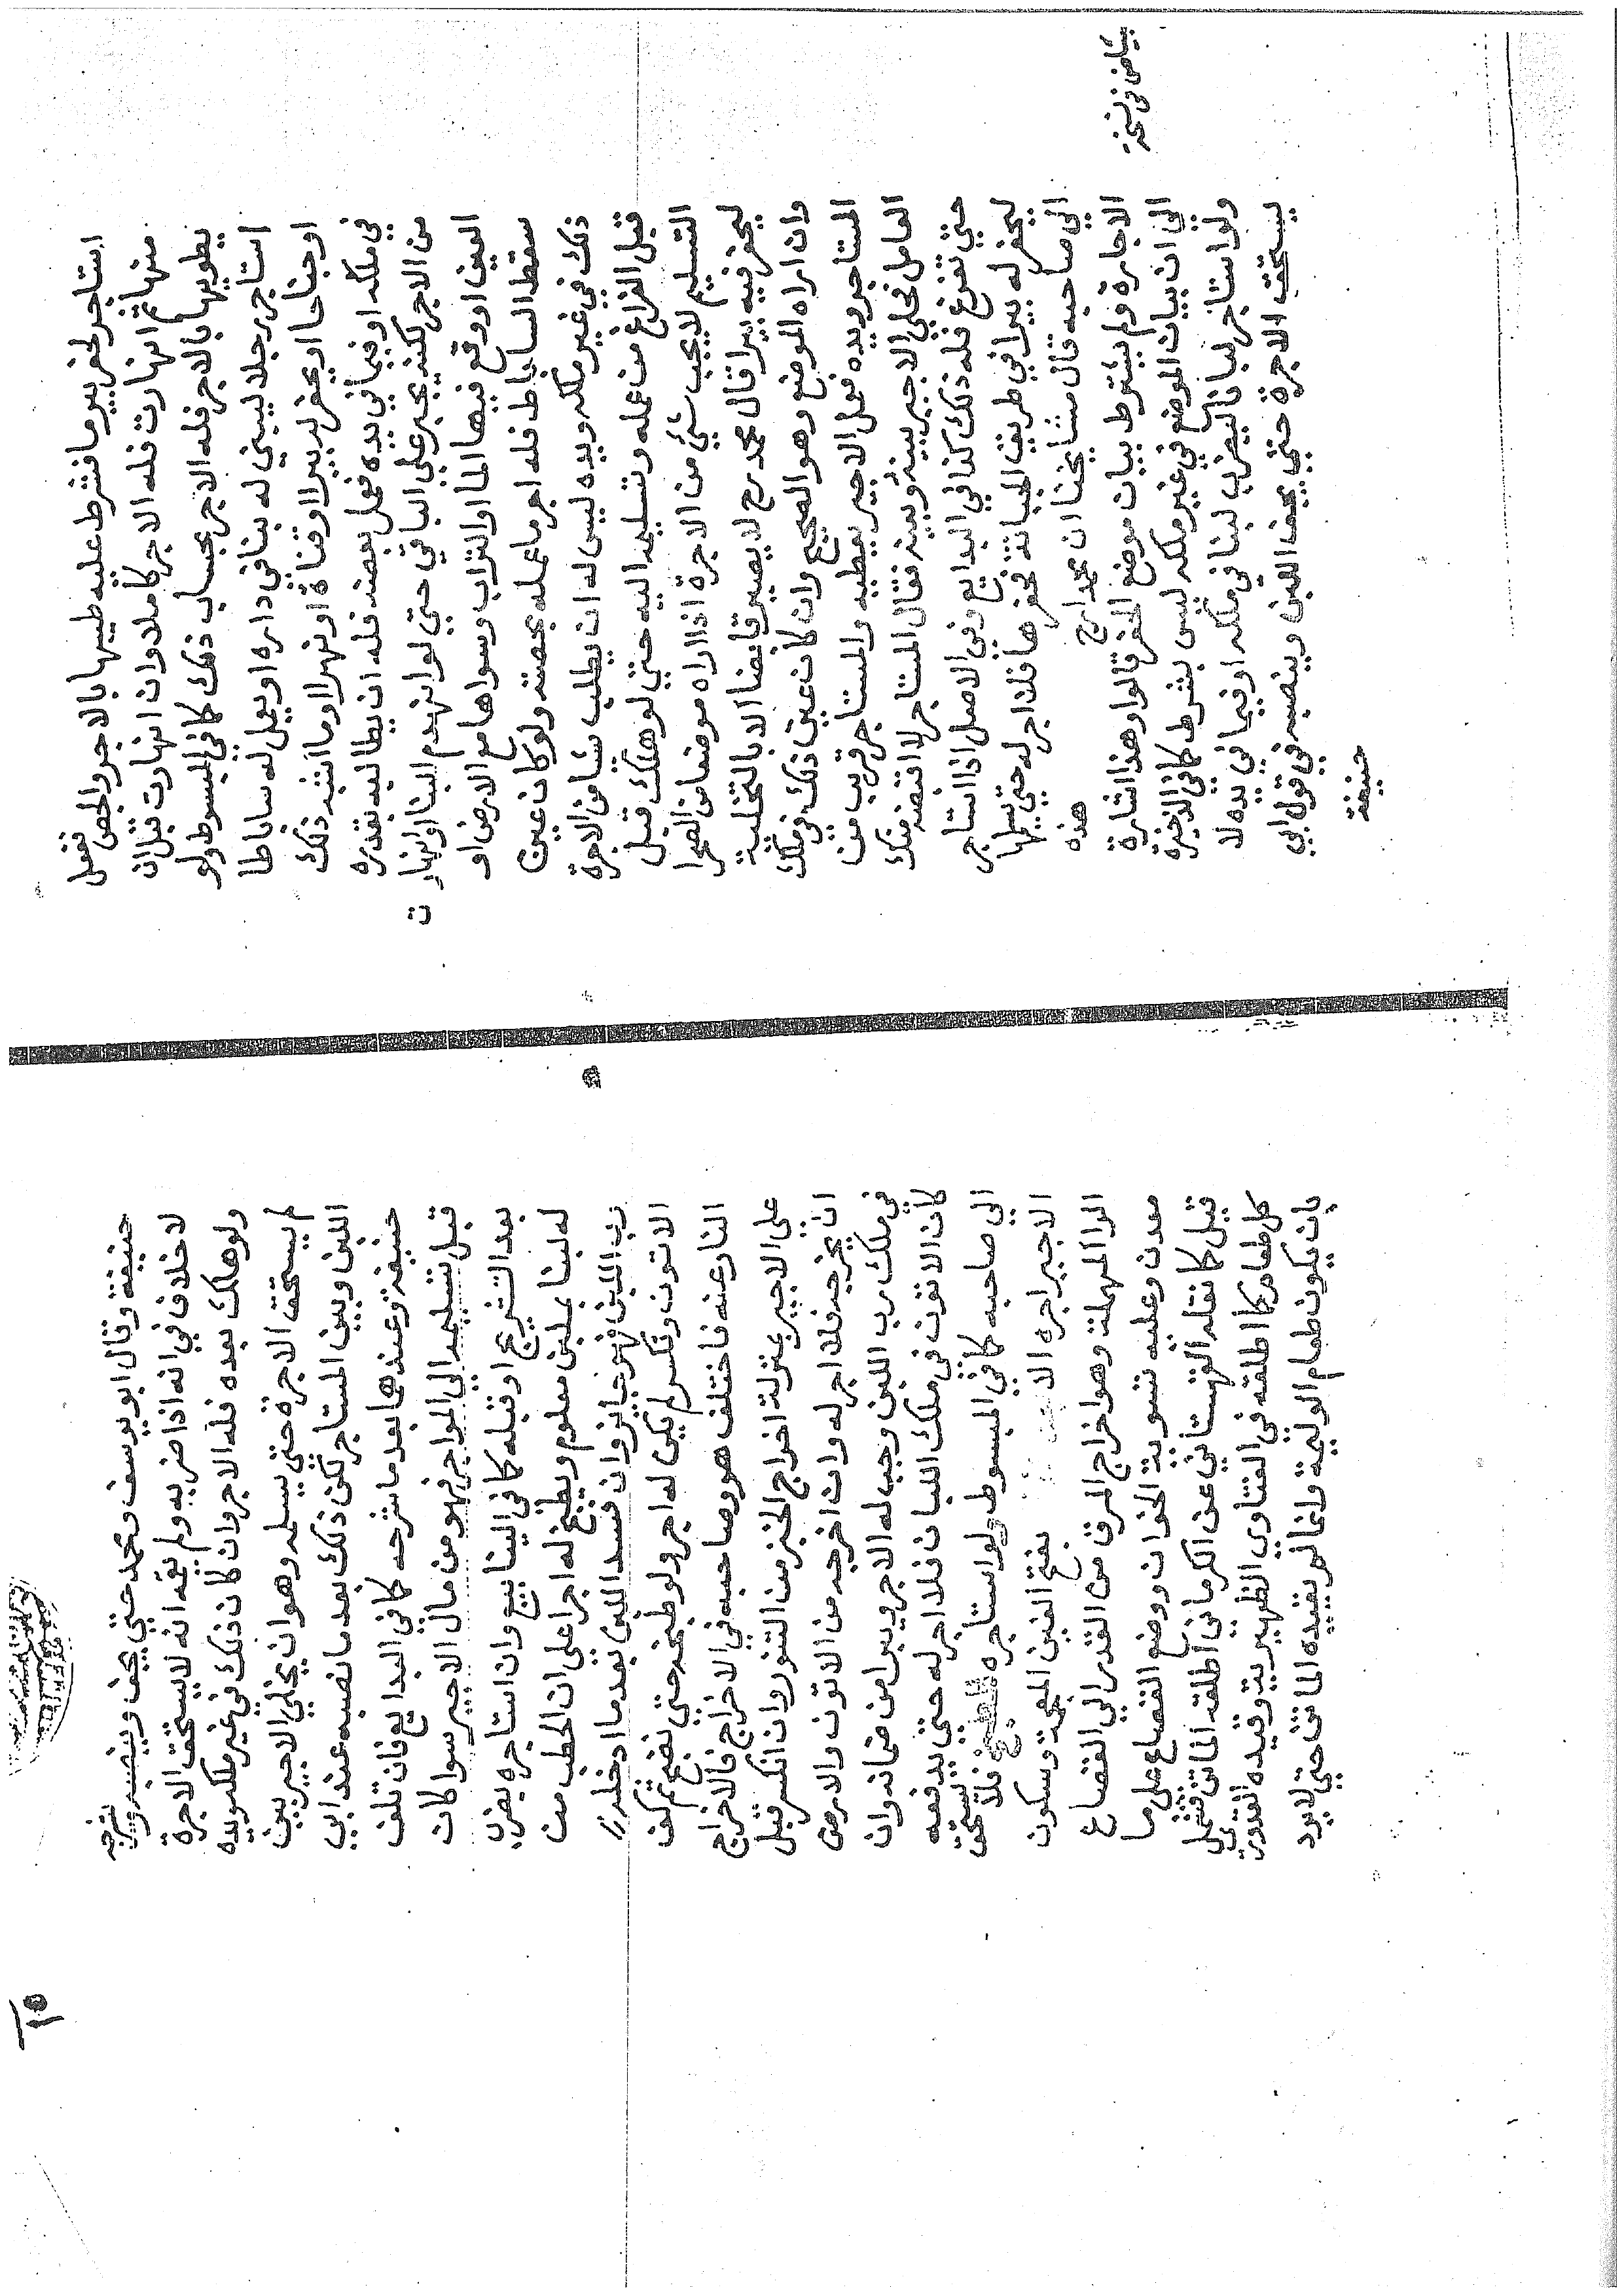 استاجر لحفر بير وما فشرط عليه طيها بالاجر والجص ففعل
منها ثم انهارت فله الاجر كاملا وان انهارت قبل ان
يطويها بالاجر فله الاجر بحساب ذلك كما في المبسوط ولو
استاجر رجلا ليبني له بنا في داره او يعمل له ساباطا
او جناحا او يحفر له بيرا او قناة او نهرا وما اشبه ذلك
في ملكه او فيما في يده فعمل بعضه فله ان يطالبه بقدره
من الاجر لكنه يجبر علي الباقي حتي لو انهدم البنا او انهارت
البير او وقع فيها الما او التراب وسواها مع الارض او
سقط الساباط فله اجر ما عمله بحصته ولو كان غير
ذلك في غير ملكه ويده ليس له ان يطلب شيا من الاجرة
قبل الفراغ من عمله وتسليمه اليه حتي لو هلك قبل
التسليم لا يجب شي من الاجرة اذا اراه موضعا من الصحرا
ليحفر فيه بيرا قال محمد رح لا يصير قابضا الا بالتخلية
وان اراه الموضع وهو الصحيح وان كان عين ذلك في ملك
المستاجر ويده فعمل الاجير بعطيه والمستاجر قريب من
العامل فخلي الاجير بينه وبينه فقال المستاجر لا اقبضه منك
حتي تفرغ فله ذلك كذا في البدايع وفي الاصل اذا استاجر
ليحفر له بيرا في طريق الجبانة فحفرها فلا اجر له حتي يسلمها
الي صاحبه قال مشايخنا ان محمدا رح هذه
الاجارة ولم يشترط بيان موضع الحفر قالوا وهذا اشارة
الي ان بيان الموضع في غير ملكه ليس بشرط كما في الذخيرة
ولو استاجر لبانا ليضرب لبنا في ملكه او فيما في يده لا
يستحق الاجرة حتي يجف اللبن وينصبه في قول ابي
حنيفة
بياض في نسخة
حنيفة وقال ابو يوسف ومحمد حتي يجف وينصبه ويشرجه
لا خلاف في انه اذا ضربه ولم يقمه انه لا يستحق الاجرة
ولو هلك بعده فله الاجر وان كان ذلك في غير ملكه ويده
لم يستحق الاجرة حتي يسلمه وهو ان يخلي الاجير بين
اللبن وبين المستاجر لكن ذلك بعد ما نصبه عند ابي
حنيفة وعندهما بعد ما شرجه كما في البدايع فان تلف
قبل تسليمه الي المواجر فهو من مال الاجير سوا كان
بعد التشريج او قبله كما في الينابيع وان استاجره يضرب
له لبنا بملبن معلوم ويطبخ له اجرا علي ان الحطب من
رب اللبن فهو جايز وان فسد اللبن بعد ما ادخله
الاتون وتكسر لم يكن له اجر ولو طبخه حتي نضج ثم كف
النار عنه فاختلف هو وصاحبه في الاخراج فالاخراج
علي الاجير بمنزلة اخراج الخبز من التنور وان انكسر قبل
ان يخرجه فلا اجر له وان اخرجه من الاتون والارض
في ملك رب اللبن وجب له الاجر ويبرا من ضمانه وان
كان الاتون في ملك اللبان فلا اجر له حتي يدفعه
الي صاحبه كما في المبسوط ولو استاجره للطبخ فلا يستحق
الاجير اجره الا بفتح الغين المعجمة وسكون
الرا المهملة وهو اخراج المرق من القدر الي القصاع
معدن وعليه تسوية الخوان ووضع القصاع علي ما
قيل كما نقله القهستاني عن الكرماني اطلقه الماتن فشمل
كل طعام كما اطلقه في الفتاوي الظهيرية وقيده القدوري
بان يكون طعام الوليمة وانما لم يقيده الماتن حتي لا يرد
١٥